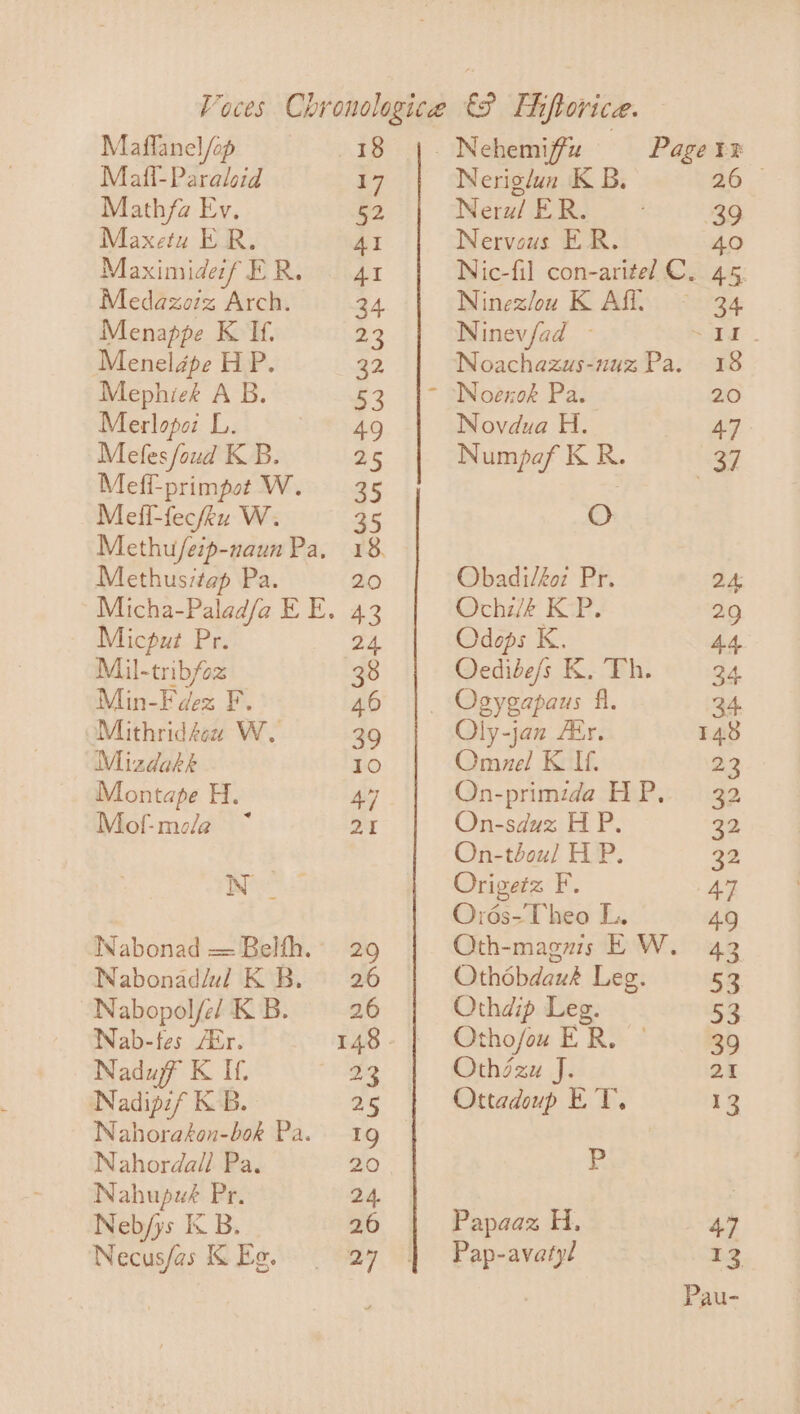 Voces Chronologicæ & Hiſtoricæ.
Maſſanelſop 18
Maſſ-Paraloid 17
Mathſa Ev. 52
Maxetu E R. 41
Maximideiſ E R. 41
Medazoiz Arch. 34
Menappe K Iſ. 23
Menelápe H P. 32
Mephiek A B. 53
Merlopoi L. 49
Meſesſoud K B. 25
Meſſ-primpot W. 35
Meſſ-ſecſku W. 35
Methuſeip-naun Pa. 18
Methusitap Pa. 20
Micha-Paladſa E E. 43
Micput Pr. 24
Mil-tribſoz 38
Min-Fdez F. 46
Mithridkou W. 39
Mizdakk 10
Montape H. 47
Moſ-mola 21
N
Nabonad = Belſh. 29
Nabonadlul K B. 26
Nabopolſel K B. 26
Nab-fes Ær. 148
Naduff K Iſ. 23
Nadipif K B. 25
Nahorakon-bok Pa. 19
Nahordall Pa. 20
Nahupuk Pr. 24
Nebſys K B. 26
Necusſas K Eg. 27
Nehemiffu Page 11
Neriglun K B. 26
Nerul E R. 39
Nervous E R. 40
Nic-fil con-aritel C. 45
Ninezlou K Aſſ. 34
Ninevſad 11
Noachazus-nuz Pa. 18
Noenok Pa. 20
Novdua H. 47
Numpaf K R. 37
O
Obadilkoi Pr. 24
Ochilk K P. 29
Odops K. 44
Oedibeſs K. Th. 34
Ogygapaus fl. 34
Oly-jan Ær. 148
Omnel K Iſ. 23
On-primida H P. 32
On-sduz H P. 32
On-tboul H P. 32
Origetz F. 47
Orós-Theo L. 49
Oth-magnis E W. 43
Othóbdauk Leg. 53
Othdip Leg. 53
Othoſou E R. 39
Othózu J. 21
Ottadoup E T. 13
P
Papaaz H. 47
Pap-avatyl 13
Pau-